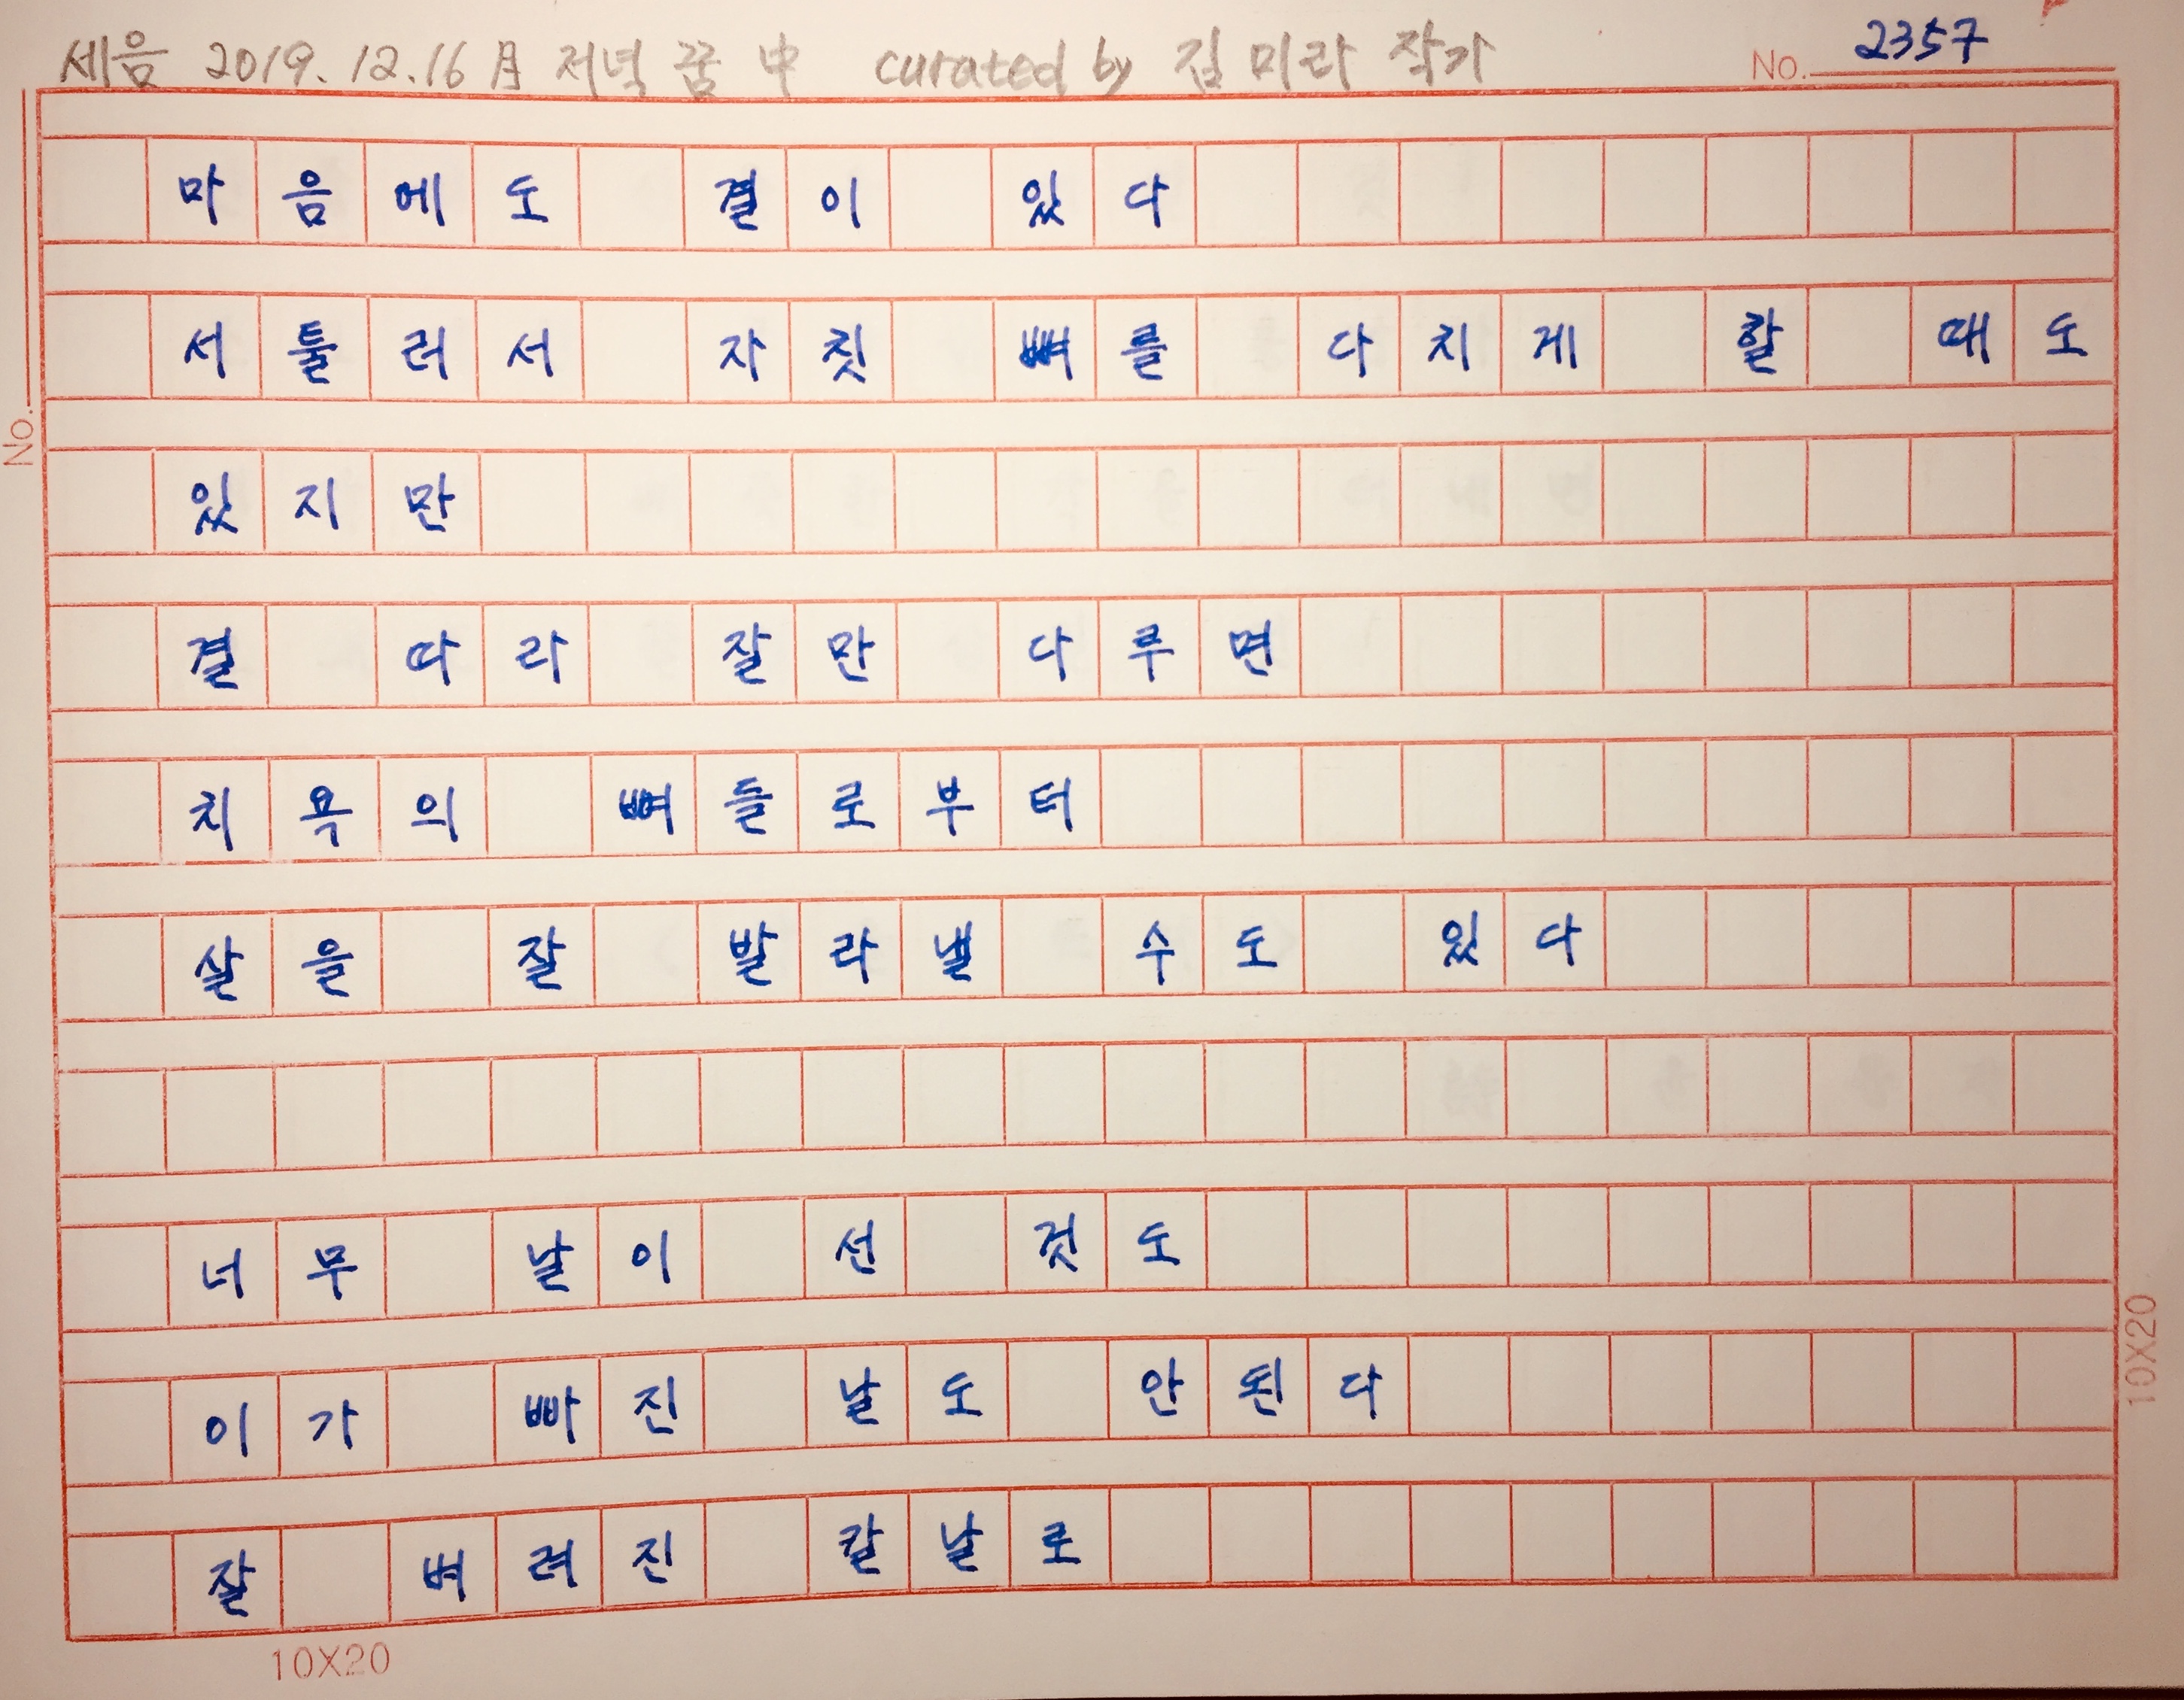 세음 2019.12.16 月 저녁 꿈 中 curated by 김미라 작가
No. 2357
마음에도 결이 있다
서툴러서 자칫 뼈를 다치게 할 때도
있지만
결 따라 잘만 다루면
치욕의 뼈들로부터
살을 잘 발라낼 수도 있다
너무 날이 선 것도
이가 빠진 날도 안된다
잘 벼려진 칼날로
No.
10X20
10X20